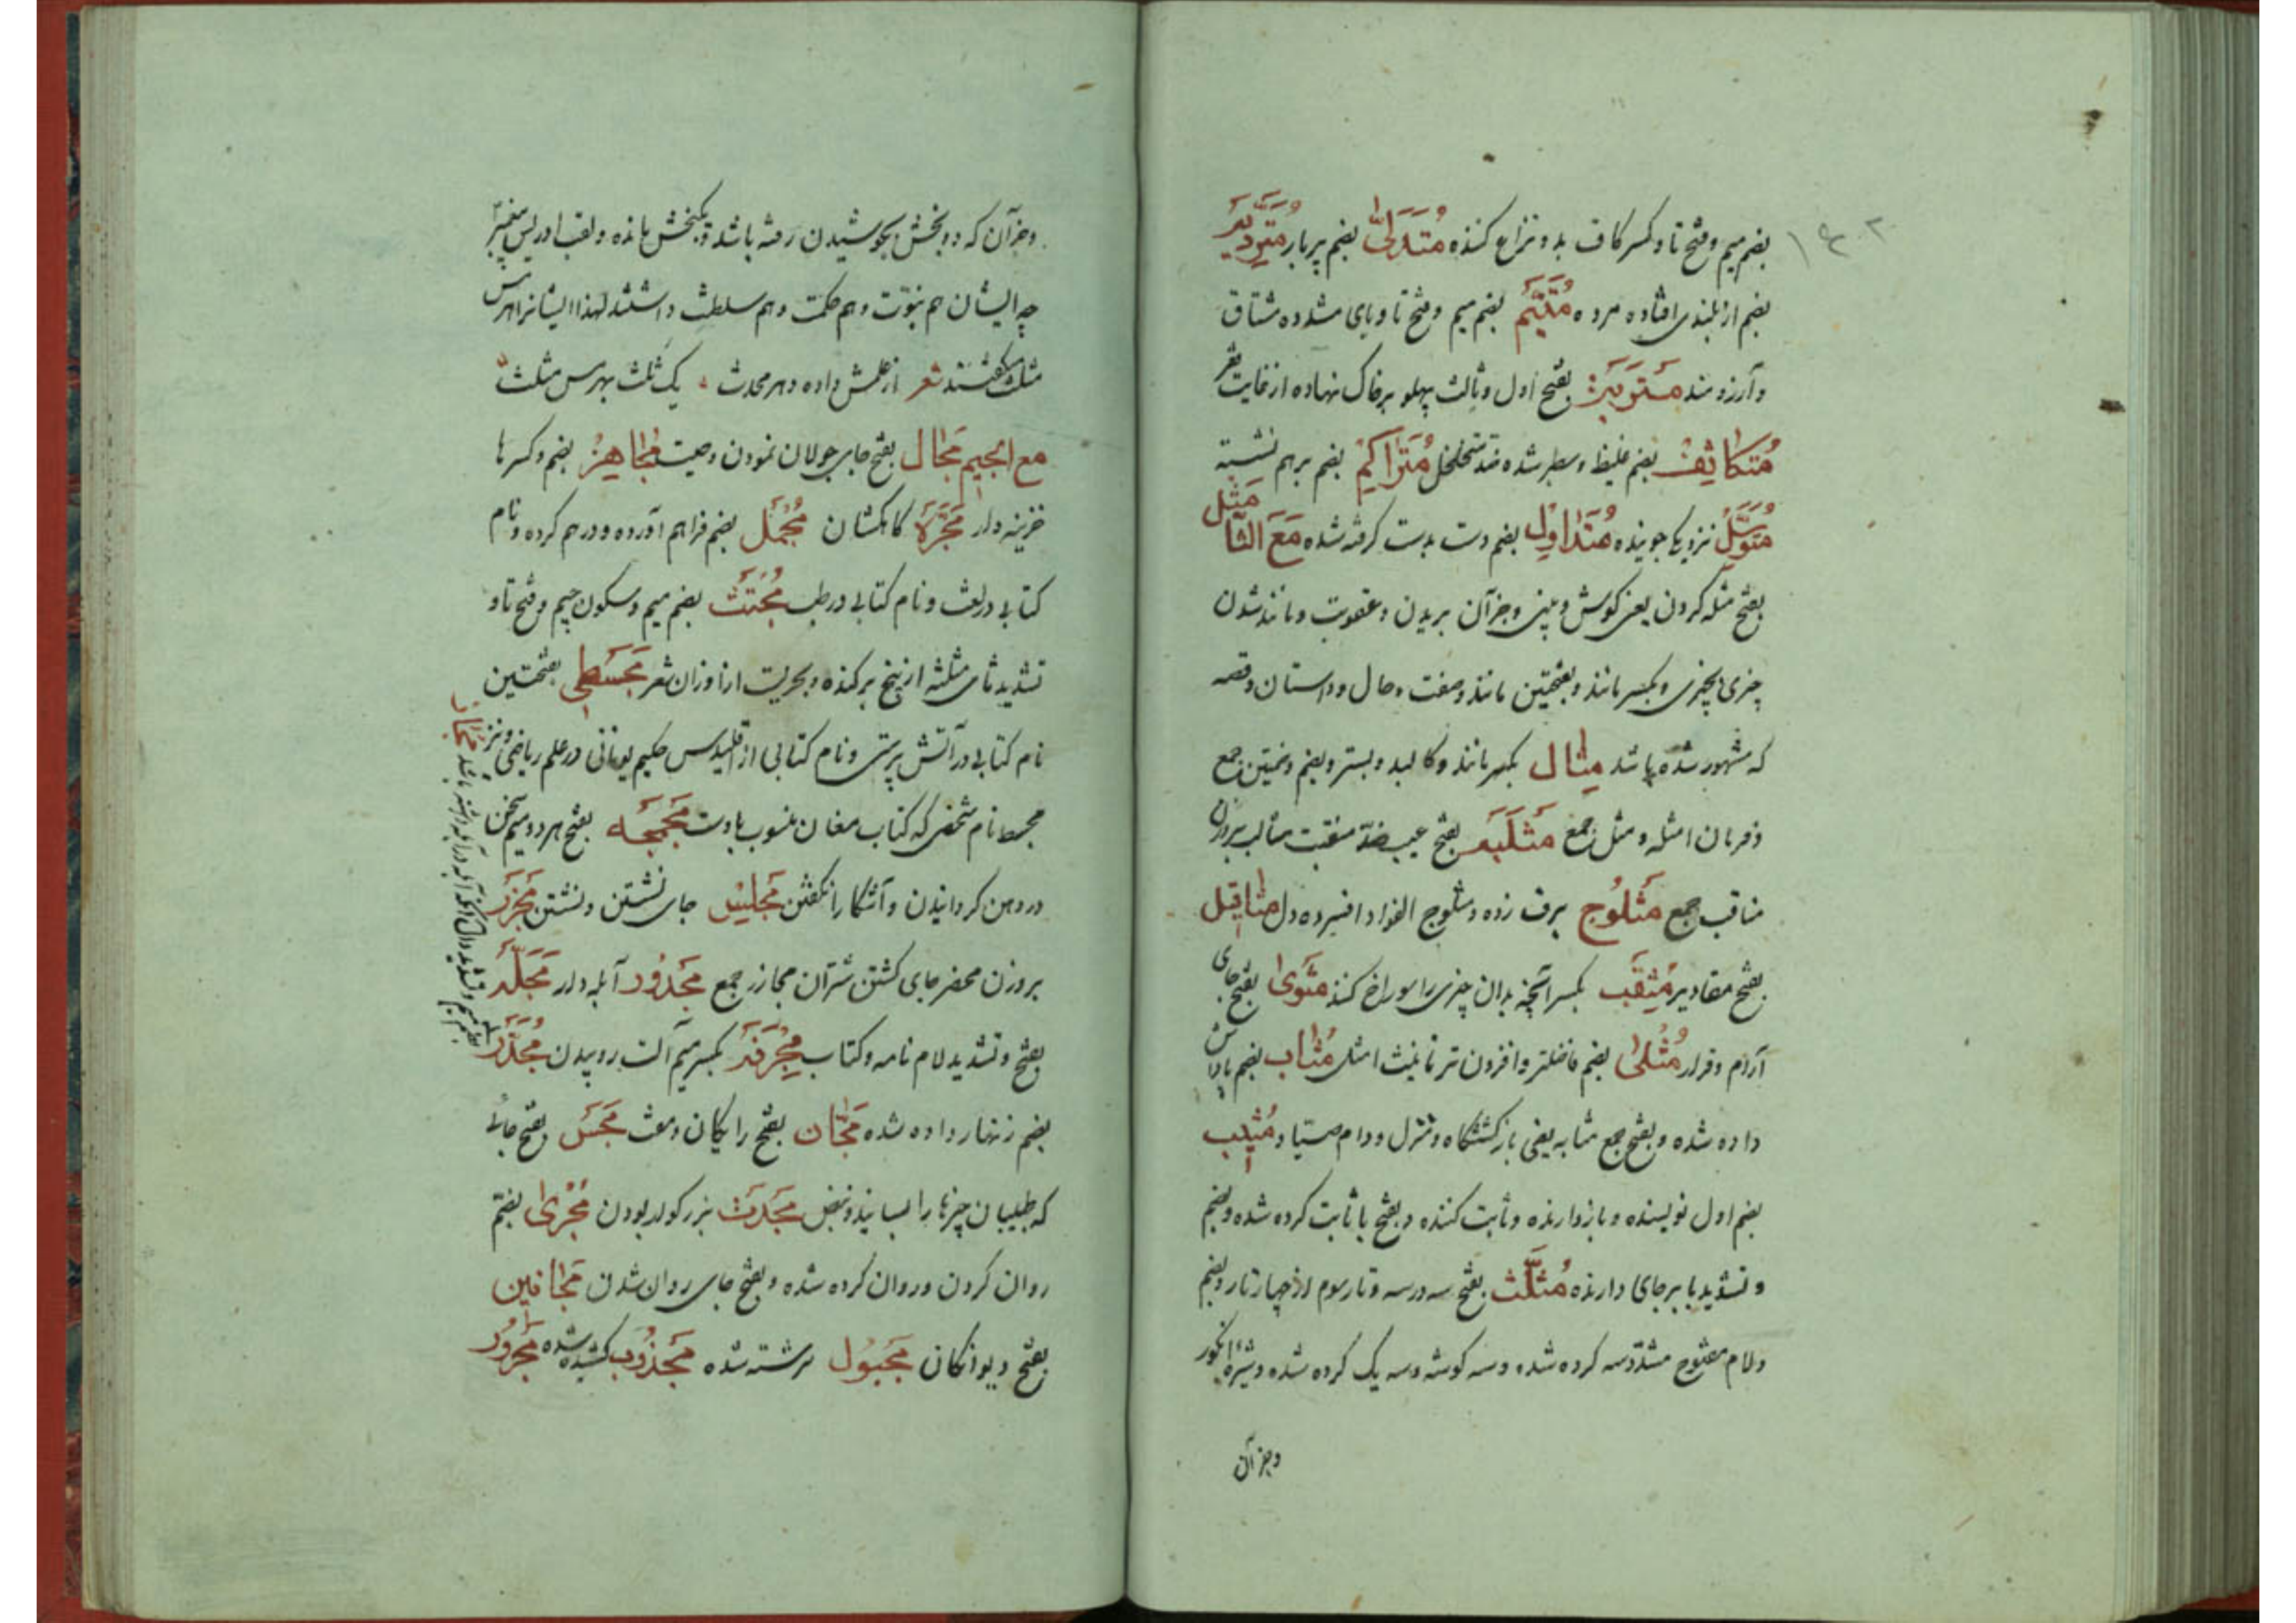 بضم میم و فتح تا و کسر کاف بد و نزاع کننده مُتَدَلّی بضم پربار مُتَرَدِّیَه
بضم از بلندی افتاده مرده مُتَیَّم بضم میم و فتح تا و یای مشدده مشتاق
و آرزومند مَتربَة بفتح اول و ثالث پهلو بر خاک نهاده از غایت فقر
مُتَکاثِف بضم غلیظ و سطبر شده ضد متخلخل مُتَراکِم بضم برهم نشسته
مُتَوَسِّل نزدیکی جوینده مُتَداوِل بضم دست بدست گرفته شده مَعَ الثّا مثل
بفتح مثله کردن یعنی گوش و بینی و جز آن بریدن و عقوبت و مانند شدن
چیزی بچیزی و بکسر مانند و بفتحتین مانند و صفت و حال و داستان و قصه
که مشهور شده باشد مِثال بکسر مانند و کالبد و بستر و بضم و ضمتین جمع
و فرمان امثله و مثل جمع مَثلَبَه بفتح عیب ضد منقبت مثالب بر وزن
مناقب جمع مَثلُوج برف زده و مثلوج الفواد افسرده دل مَثاقِیل
بفتح مقادیر مِثقَب بکسر آنچه بدان چیزی را سوراخ کنند مَثوی بفتح جای
آرام و قرار مُثلی بضم فاضلتر و افزون تر تانیث امثل مُثاب بضم پاداش
داده شده و بفتح جمع مثابه یعنی بازگشتگاه و منزل و دام صیاد مُثبِت
بضم اول نویسنده و بازدارنده و ثابت کننده و بفتح با ثابت کرده شده و بضم
و تشدید با برجای دارنده مُثَلَّث بفتح سه در سه و تار سوم از چهار تار و بضم
و لام مفتوح مشدد سه کرده شده و سه گوشه و سه یک کرده شده و شیره انگور
و جز آن
و جز آن که دو بخش بجوشیدن رفته باشد و یکبخش مانده و لقب ادریس پیغمبر
چه ایشان هم نبوت و هم حکمت و هم سلطنت داشتند لهذا ایشانرا هرمس
مثلث گفتند شعر از علمش داده دهر محدث یک ثلث بهرمس مثلث
مع الجیم مَجال بفتح جای جولان نمودن مُجاهِز بضم و کسر ها
خزینه دار مَجَرَّة کاهکشان مُجمَل بضم فراهم آورده و درهم کرده و نام
کتابی در لغت و نام کتابی در طب مُجتَث بضم میم و سکون جیم و فتح تا و
تشدید ثای مثلثه از بیخ برکنده و بحریست از اوزان شعر مَجَسطی بفتحتین
نام کتابی در آتش پرستی و نام کتابی از اقلیدس حکیم یونانی در علم ریاضی و نیز
مجسط نام شخصی که کتاب مغان منسوب باوست مَجمَجَه بفتح هر دو میم سخن
در دهن گردانیدن و آشکارا نگفتن مَجلِس جای نشستن و نشستن مَجزَر
بر وزن محضر جای کشتن شتران مجازر جمع مَجدُور آبله دار مَجَلَّه
بفتح و تشدید لام نامه و کتاب مِجرَفَه بکسر میم آلت روبیدن مُجَدَّر
بضم زنهار داده شده مَجّان بفتح رایگان و مفت مَجَس بفتح جائی
که طبیبان مَجدَت بزرگوار بودن مُجری بضم
روان کردن و روان کرده شده و بفتح جای روان شدن مَجانین
بفتح دیوانگان مَجبُول سرشته شده مَجذُوب کشیده شده مَجرُور